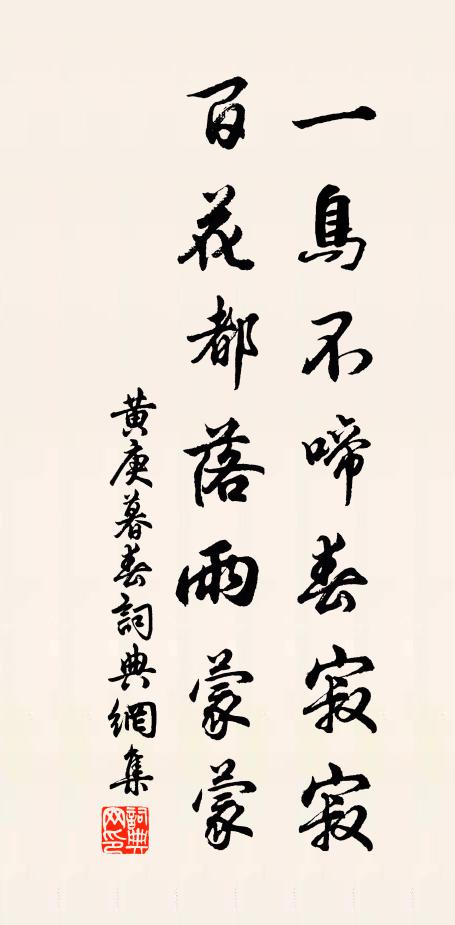 一鳥不啼春寂寂
百花都落雨蒙蒙
黄庚暮春詞典網集
詞典網印